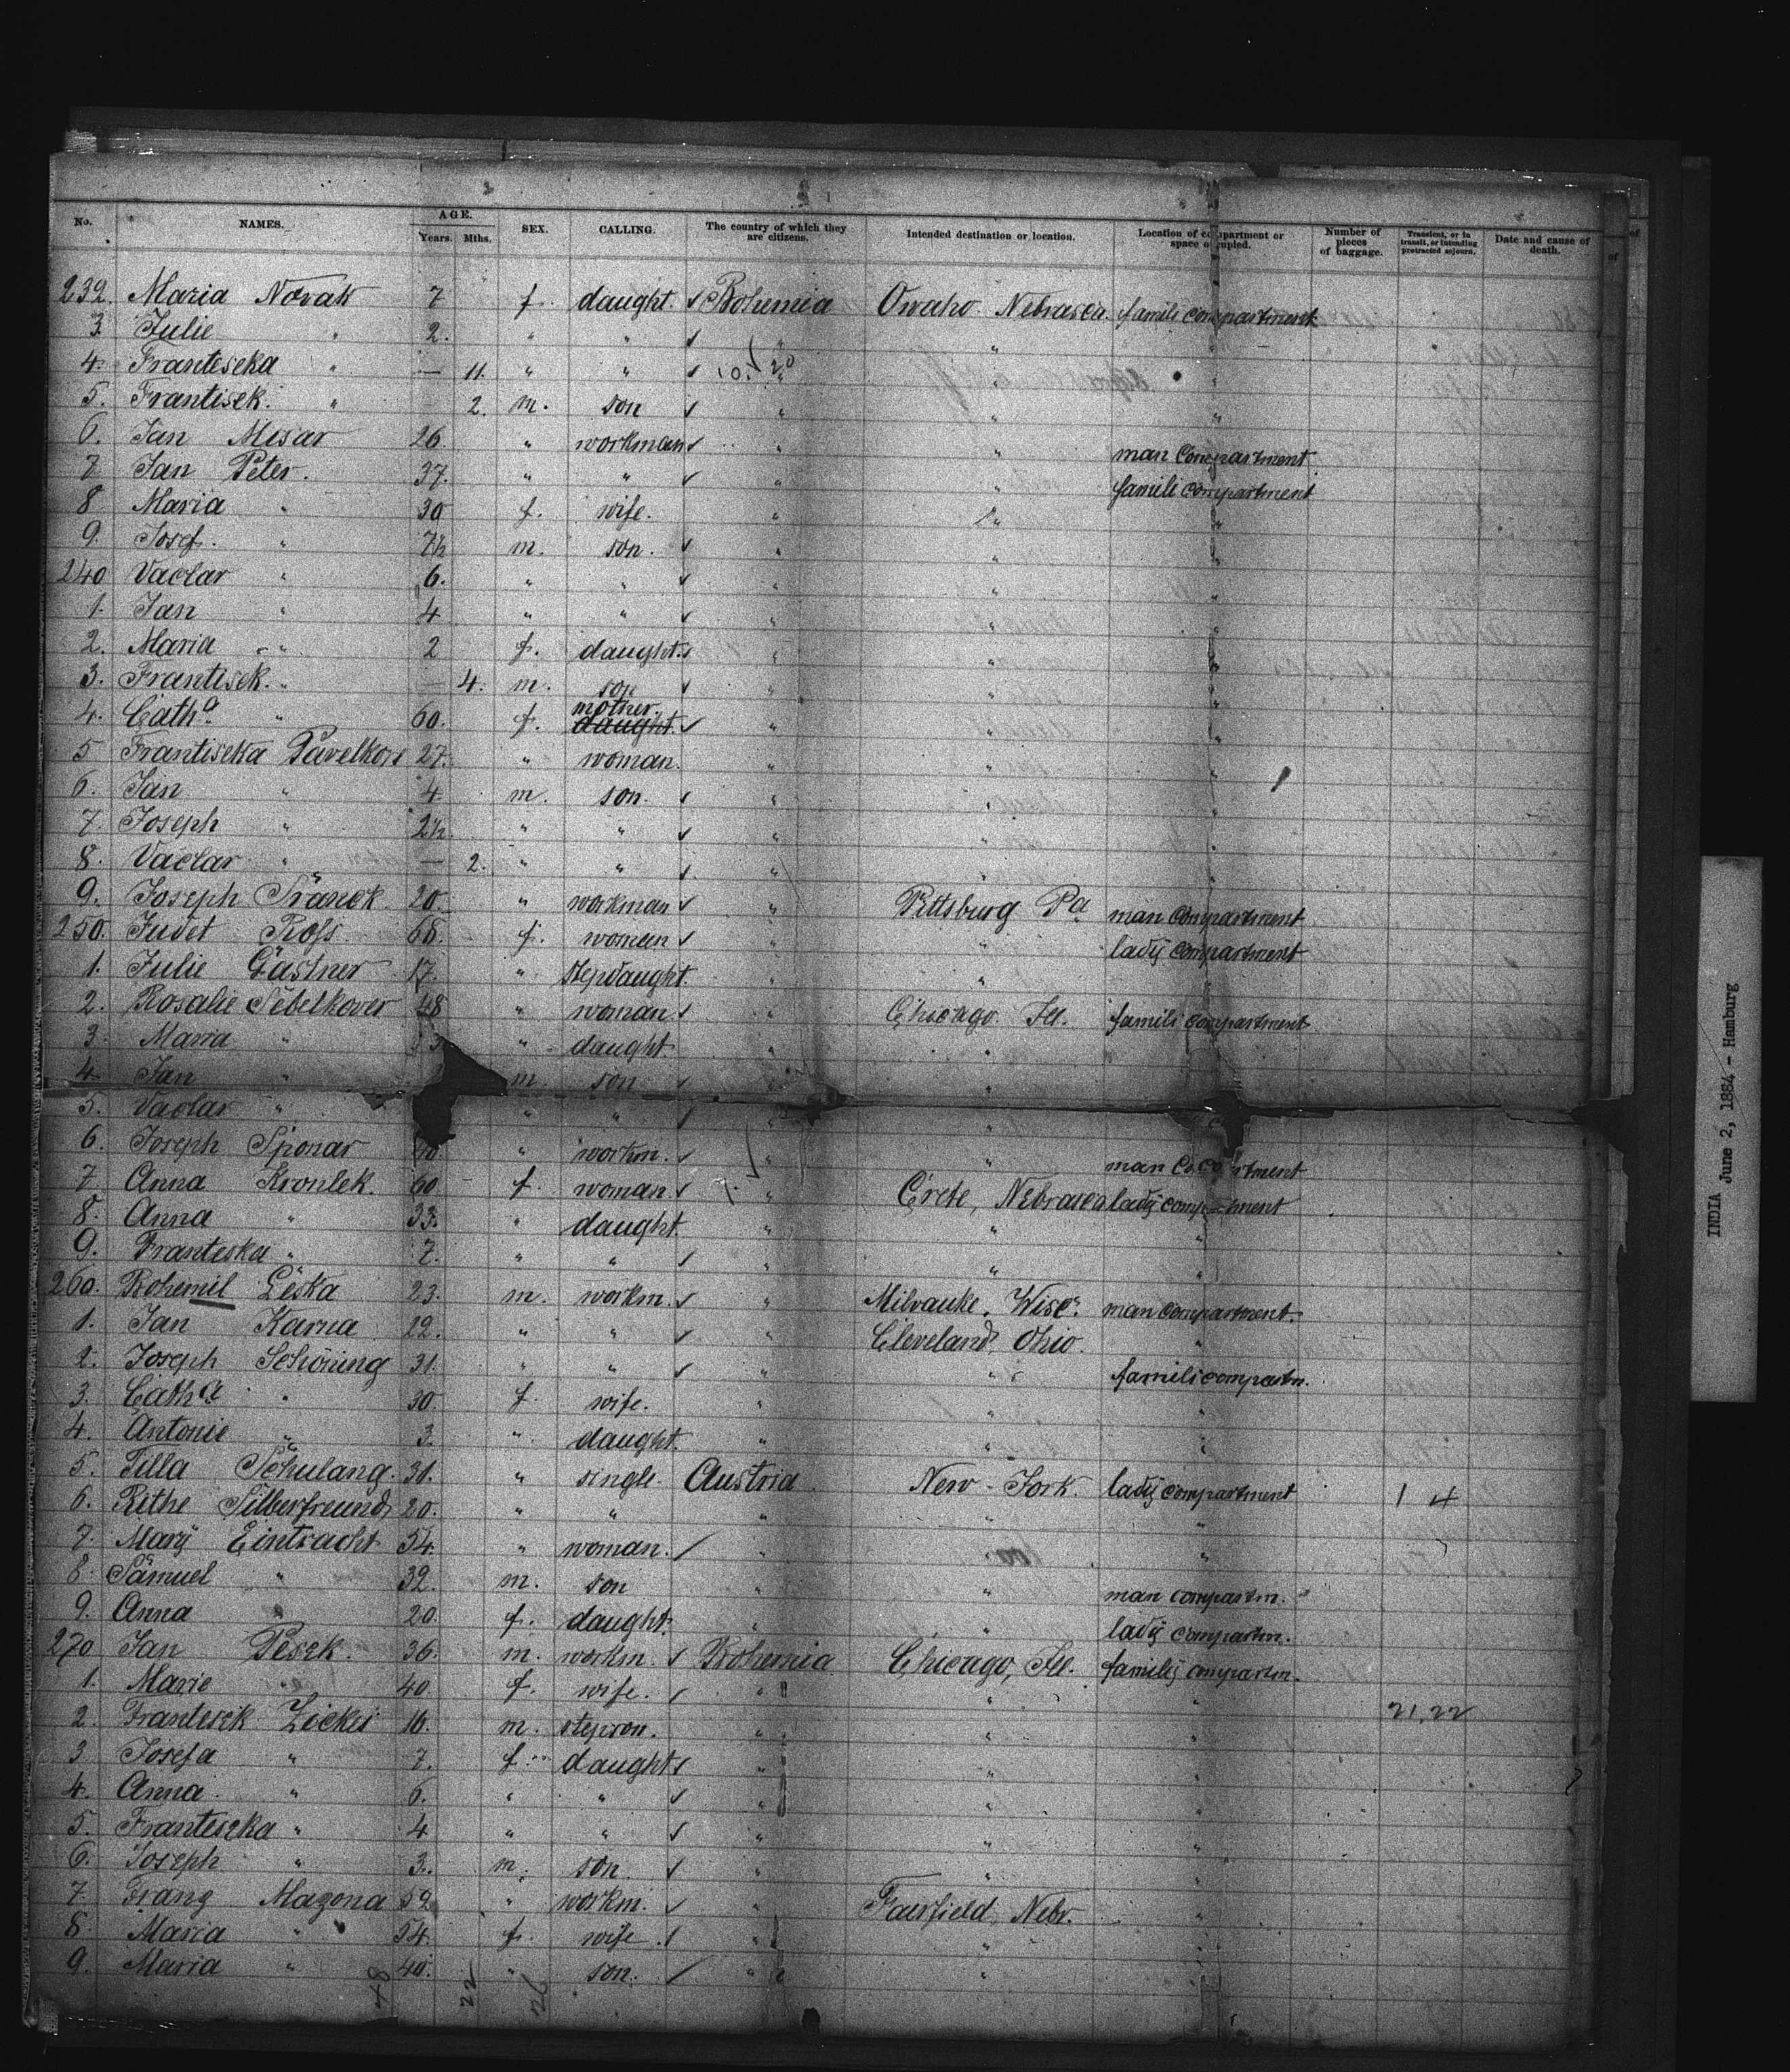 No. NAMES. AGE. Years. Mths. SEX. CALLING. The country of which they are citizens. Intended destination or location. Location of compartment or space occupied. Number of pieces of baggage. Transient, or in transit, or intending protracted sojourn. Date and cause of death.
232. Maria Novak 7 f. daught. ✓ Bohemia Owaho Nebrasca. famili compartment
3. Julie " 2. " " ✓ " " "
4. Frantiseka " — 11. " " ✓ 10./20 " " "
5. Frantisek. " 2. m. son ✓ " " "
6. Jan Mesar 26. " workman ✓ " " man compartment
7. Jan Peter. 37. " " ✓ " " famili compartment
8 Maria " 30 f. wife. " " "
9. Josef. " 7½ m. son. ✓ " " "
240 Vaclar " 6. " " ✓ " " "
1. Jan " 4 " " ✓ " " "
2. Maria " 2 f. daught. ✓ " " "
3. Frantisek. " — 4. m. son ✓ " " "
4. Catha. " 60. f. mother. daught. ✓ " " "
5 Frantiseka Pavelkov 27. " woman. " " "
6. Jan " 4. m. son. ✓ " " "
7. Joseph " 2½. " " ✓ " " "
8. Vaclar " — 2. " " ✓ " " "
9. Joseph 20. " workman ✓ " Pittsburg Pa man compartment
250. Judet Rofs 68. f. woman ✓ " " lady compartment
1. Julie Gastner 17. " stepdaught. " "
2. Rosalie Sebelkover 48 " woman ✓ " Chicago. Ill. famili compartment
3. Maria " " daught " "
4. Jan " m. son ✓ " "
5. Vaclar " " " ✓ " "
6. Joseph Sponar " workm. ✓ " " man
7. Anna Kronlek. 60. f. woman ✓ " Crete, Nebrasca lady compartment
8. Anna " 33. " daught. " " "
9. Franteska " 7. " " ✓ " " "
260. Bohemil Ceska 23. m. workm. ✓ " Milvauke. Wisc. man compartment.
1. Jan Karna 22. " " ✓ " Cleveland, Ohio. "
2. Joseph Schöning 31. " " ✓ " " famili compartm.
3. Catha " 30. f. wife. " " "
4. Antonie " 3. " daught. " " "
5. Tilla Schulang. 31. " single. Austria New-York. lady compartment 1 4
6. Rithe Silberfreund 20. " " " " "
7. Mary Eintracht 54. " woman. / " " "
8. Samuel " 32. m. son " " man compartm.
9. Anna " 20. f. daught. " " lady compartm.
270 Jan Pesek. 36. m. workm. ✓ Bohemia Chicago, Ill. family compartm.
1. Marie " 40 f. wife. / " " " 21,22
2. Frantesek Zickei 16. m. stepson. " " "
3 Josefa " 7. f. daught ✓ " " "
4. Anna. " 6. " " ✓ " " "
5. Franteseka " 4 " " ✓ " " "
6. Joseph " 3. m. son. ✓ " " "
7. Franz Mazona 59 " workm. ✓ " Fairfield, Nebr. "
8. Maria " 54. f. wife. ✓ " " "
9. Maria " 40. " son. / " "
48 22 26
INDIA June 2, 1884 - Hamburg